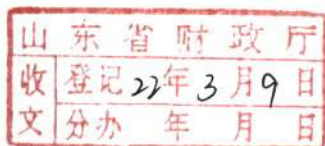 山东省财政厅
收文 登记 22年3月9日
分办 年 月 日